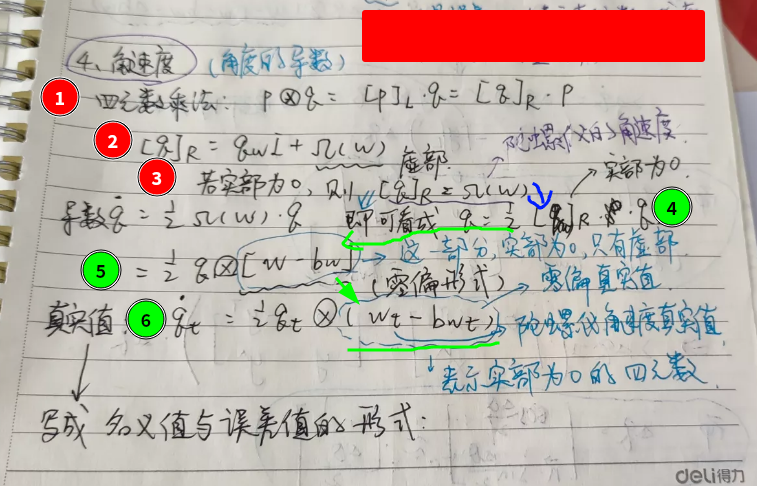 4、角速度 (角度的导数)
1 四元数乘法: P⊗q = [P]L·q = [q]R·P
2 [q]R = qwI + Ω(w) 虚部. 陀螺仪的角速度.
3 若实部为0, 则 [q]R = Ω(w) 实部为0.
导数 q̇ = ½ Ω(w)·q 即可看成 q̇ = ½ []R··q 4
5 = ½ q⊗[w - bw] → 这一部分, 实部为0, 只有虚部
(零偏形式) 零偏真实值.
真实值: 6 q̇t = ½qt ⊗ (wt - bwt) 陀螺仪角速度真实值
↓表示实部为0的四元数.
写成 名义值与误差值的形式:
deli得力